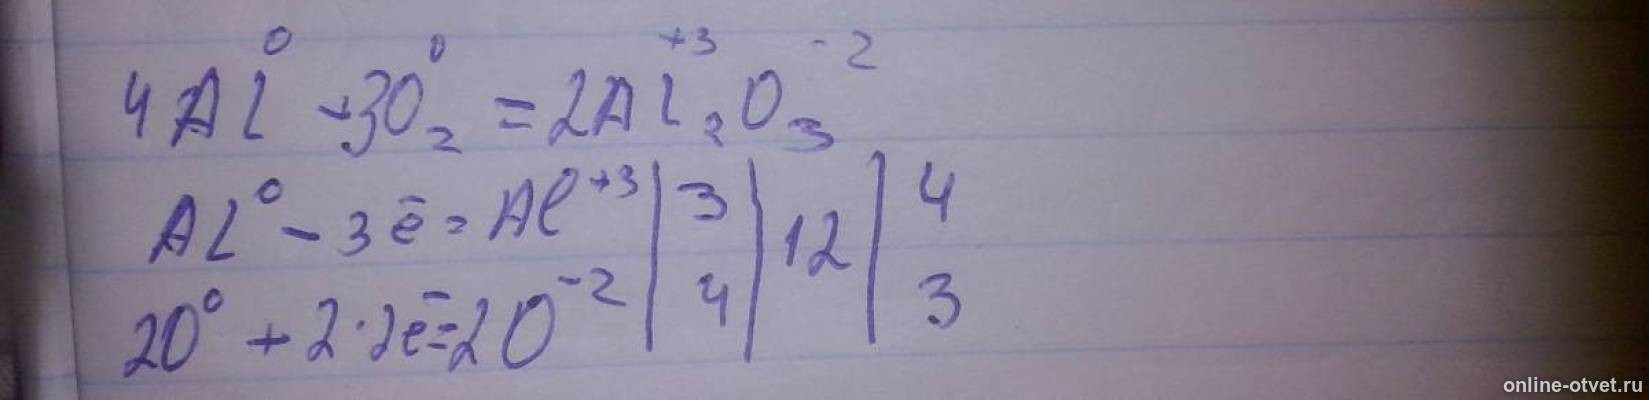 4Al⁰ + 3O₂⁰ = 2Al₂⁺³O₃⁻²
Al⁰ - 3ē = Al⁺³ | 3 | 12 | 4
2O⁰ + 2·2ē = 2O⁻² | 4 | | 3
online-otvet.ru